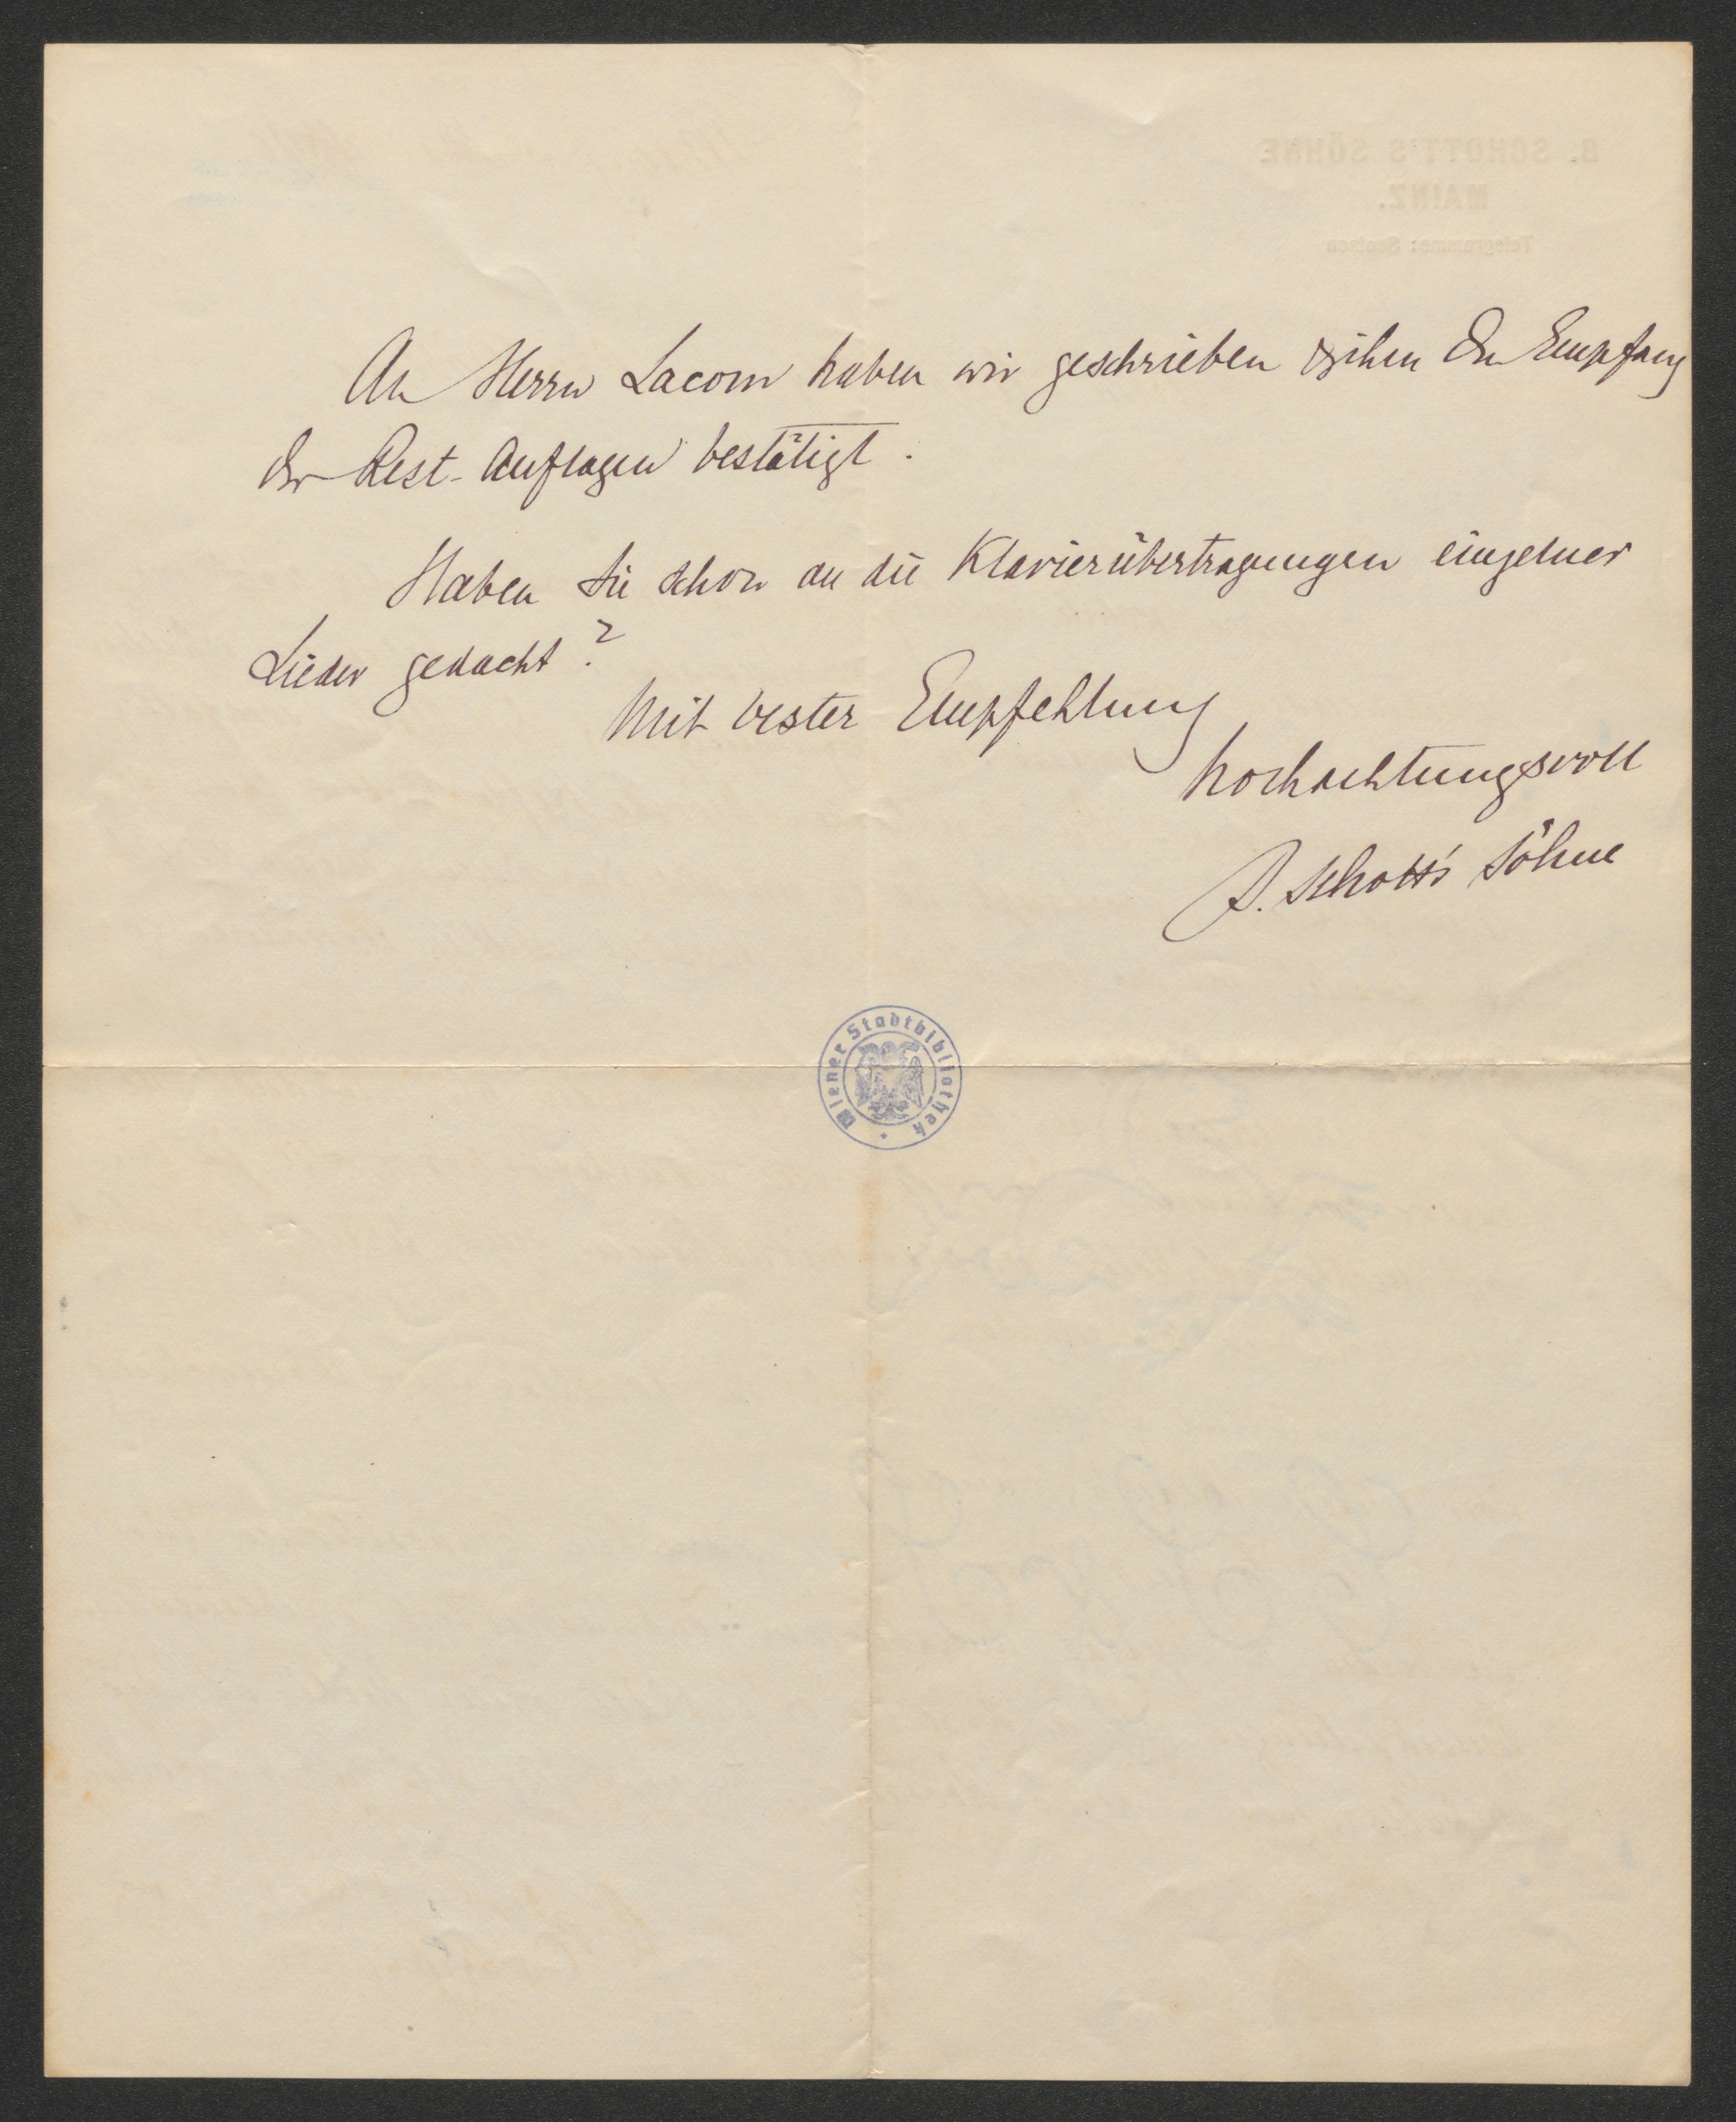 An Herrn Lacom haben wir geschrieben & ihm den Empfang
der Rest-Auflagen bestätigt.
Haben Sie schon an die Klavierübertragungen einzelner
Lieder gedacht?
Mit bester Empfehlung
hochachtungsvoll
B. Schott's Söhne
Wiener Stadtbibliothek
B. SCHOTT'S SÖHNE
MAINZ.
Telegramme: Scotson